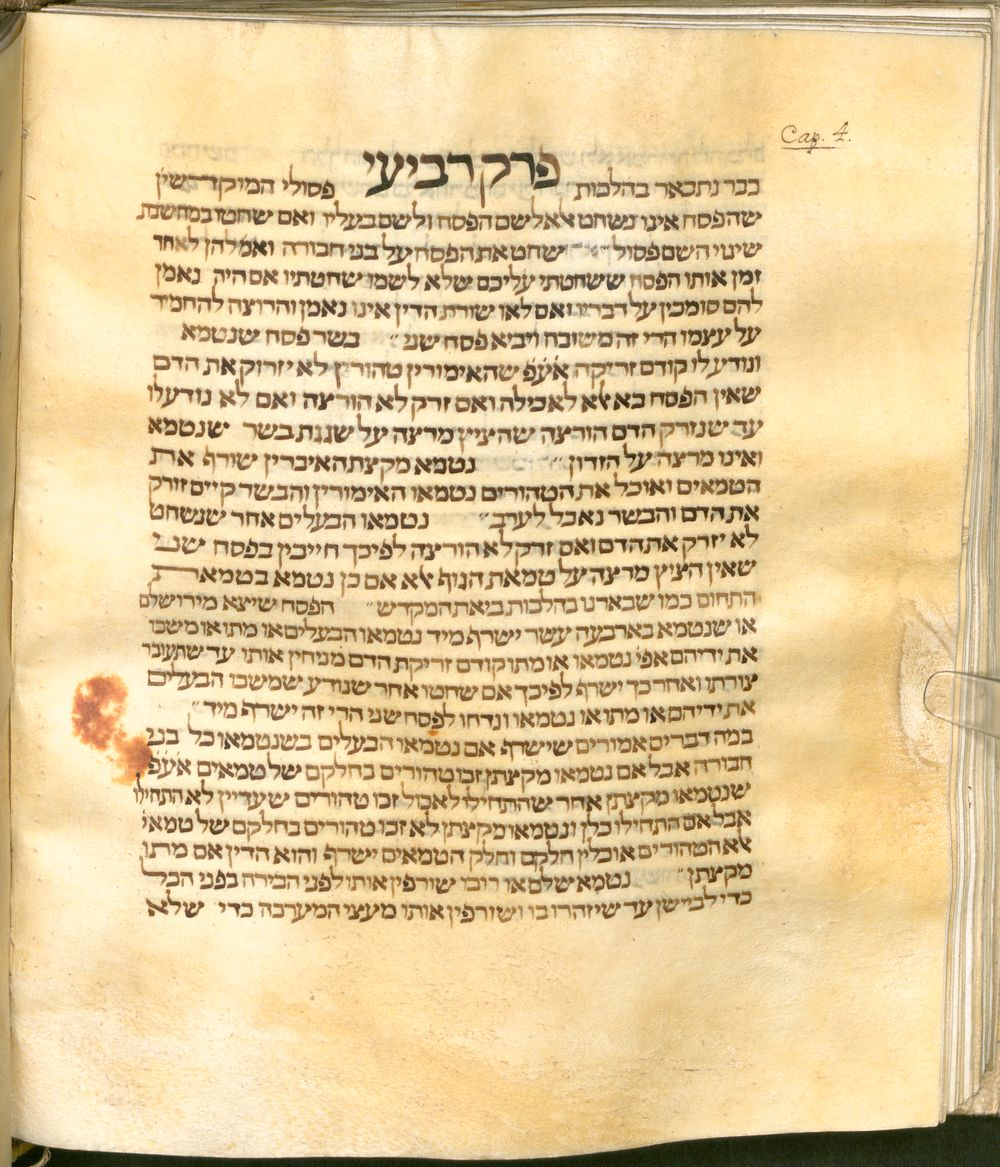 Cap. 4.
פרק רביעי
כבר נתבאר בהלכות פסולי המוקדשין
שהפסח אינו נשחט אלא לשם הפסח ולשם בעליו ואם שחטו במחשבת
שינוי השם פסול שחט את הפסח על בני חבורה ואמ׳ להן לאחר
זמן אותו הפסח ששחטתי עליכם שלא לשמו שחטתיו אם היה נאמן
להם סומכין על דבריו ואם לאו שורת הדין אינו נאמן והרוצה להחמיר
על עצמו הרי זה משובח ויביא פסח שני בשר פסח שנטמא
ונודע לו קודם זריקה אע״פ שהאימורין טהורין לא יזרוק את הדם
שאין הפסח בא אלא לאכילה ואם זרק לא הורצה ואם לא נודע לו
עד שנזרק הדם הורצה שהציץ מרצה על שגגת בשר שנטמא
ואינו מרצה על הזדון נטמא מקצת האיברין שורף את
הטמאים ואוכל את הטהורים נטמאו האימורין והבשר קיים זורק
את הדם והבשר נאכל לערב נטמאו הבעלים אחר שנשחט
לא יזרק את הדם ואם זרק לא הורצה לפיכך חייבין בפסח שני
שאין הציץ מרצה על טמאת הגוף אלא אם כן נטמא בטמאת
התהום כמו שבארנו בהלכות ביאת המקדש הפסח שיצא מירושלם
או שנטמא בארבעה עשר ישרף מיד נטמאו הבעלים או מתו או משכו
את ידיהם אפי׳ נטמאו או מתו קודם זריקת הדם מניחין אותו עד שתעובר
צורתו ואחר כך ישרף לפיכך אם שחטו אחר שנודע שמשכו הבעלים
את ידיהם או מתו או נטמאו ונדחו לפסח שני הרי זה ישרף מיד
במה דברים אמורים שישרף אם נטמאו הבעלים בשנטמאו כל בני
חבורה אבל אם נטמאו מקצתן זכו טהורים בחלקם של טמאים אע״פ
שנטמאו מקצתן אחר שהתחילו לאכול זכו טהורים שעדיין לא התחילו
אבל אם התחילו כלן ונטמאו מקצתן לא זכו טהורים בחלקם של טמאי׳
אלא הטהורים אוכלין חלקם וחלק הטמאים ישרף והוא הדין אם מתו
מקצתן נטמא שלם או רובו שורפין אותו לפני הבירה בפני הכל
כדי לביישן עד שיזהרו בו ושורפין אותו מעצי המערכה כדי שלא